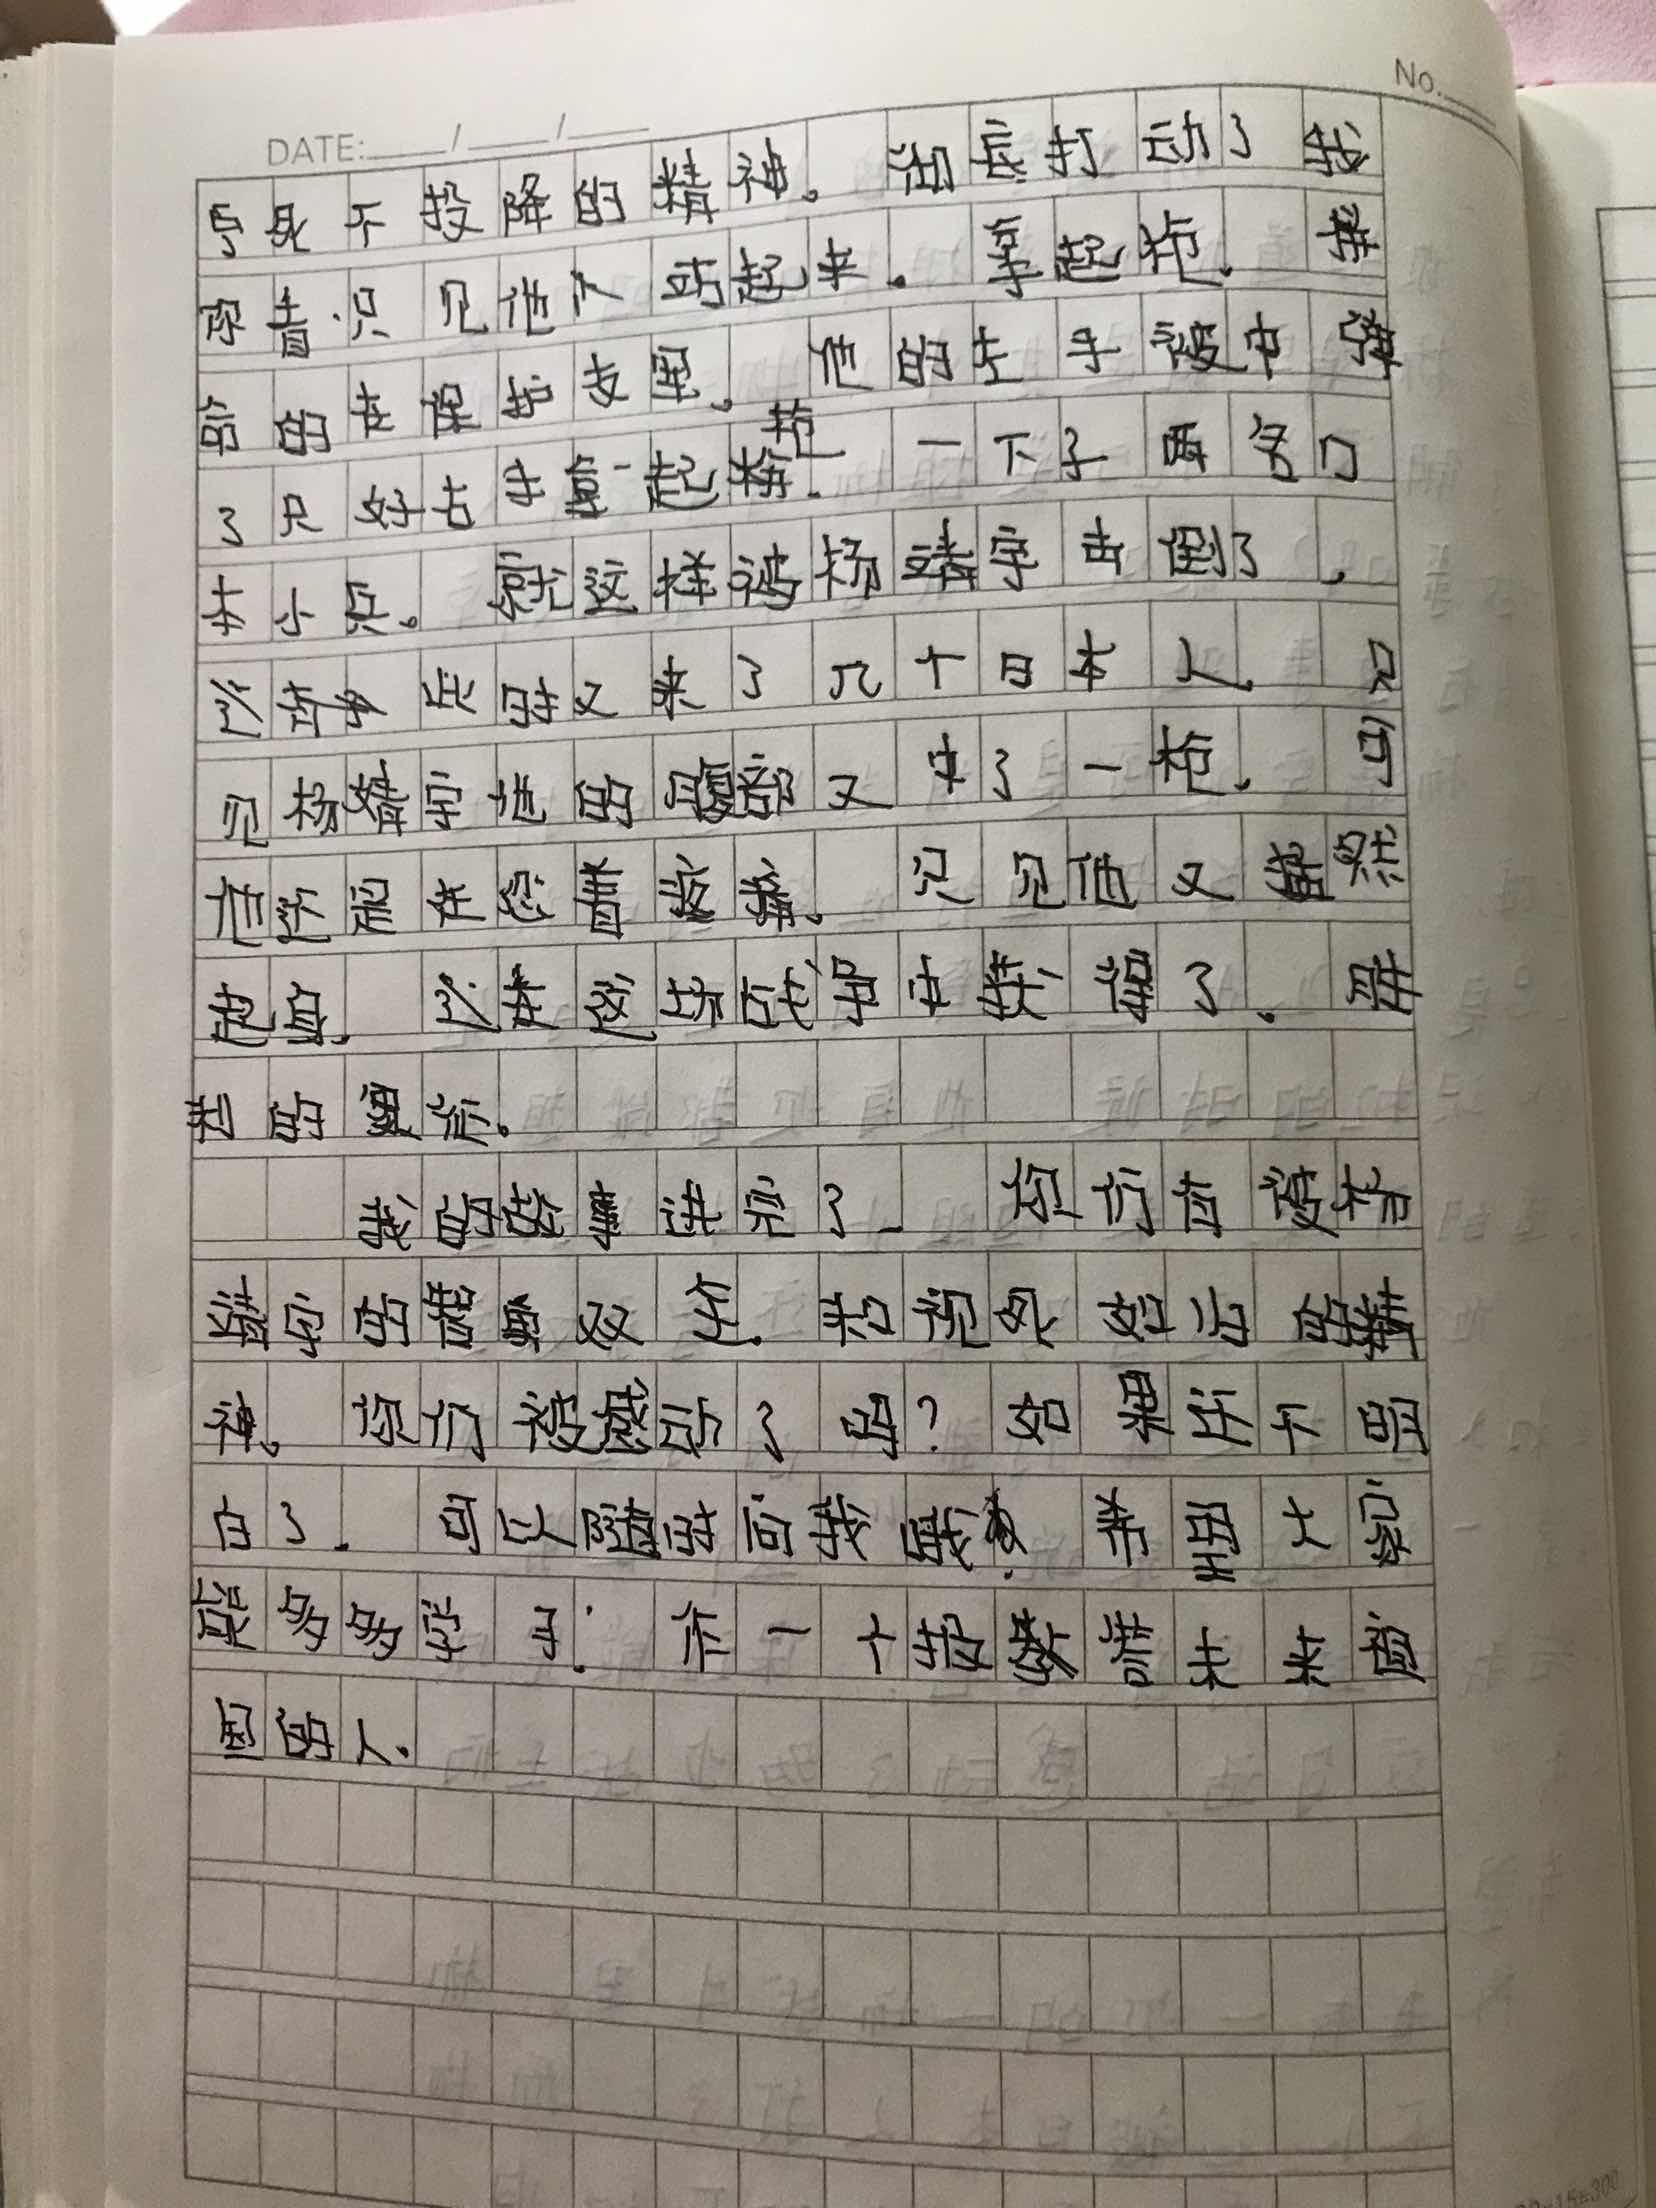 DATE: / /
No.
宁死不投降的精神。彻底打动了我
只见他人站起来。拿起枪。
的在保护友军。他的左手被中弹
了只好右手拿起枪。一下子两名日
本小兵。就这样被杨靖宇击倒了。
这时又来了几十日本人。只
见杨靖宇他的腹部又中了一枪。可
他还是在忍着疼痛。只见他又猛然
起身。在这场战争中获得了。胜
利的更你。
我的故事讲完了。你们有被杨
靖宇的智勇双全。和视死如归的精
神。你们被感动了吗?如果还不明
白了。可以随时问我哦。希望大家
能多多学习。作一个报效着未来祖
国的人.